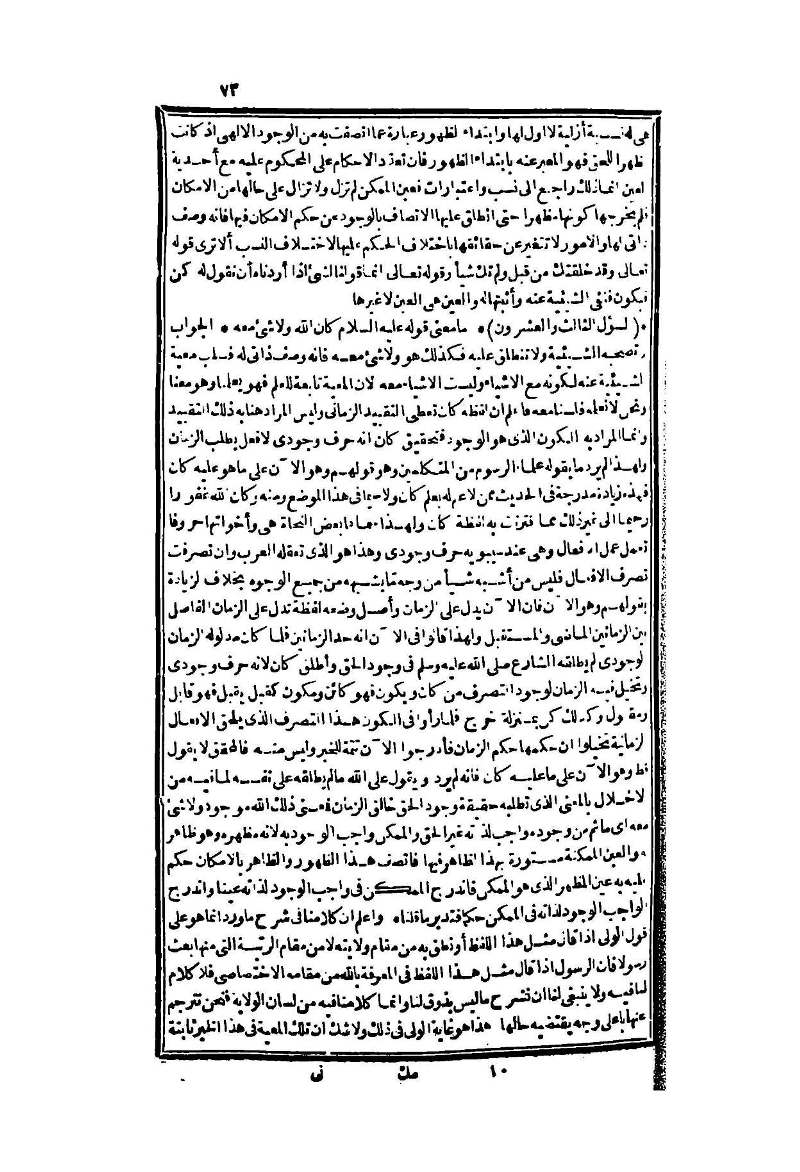 ٧٣
هى له نسبة أزلية لا أول لها وابتداء الظهور عبارة عما اتصفت به من الوجود الالهى اذ كانت
مظهرا للحق فهو المعبر عنه بابتداء الظهور فان تعدد الاحكام على المحكوم عليه مع أحدية
العين انما ذلك راجع الى نسب واعتبارات فعين الممكن لم تزل ولا تزال على حالها من الامكان
فلم يخرجها كونها مظهرا حتى انطلق عليها الاتصاف بالوجود عن حكم الامكان فيها فانه وصف
ذاتى لها والامور لا تتغير عن حقائقها باختلاف الحكم عليها لاختلاف النسب ألا ترى قوله
تعالى وقد خلقتك من قبل ولم تك شيأ وقوله تعالى انما قولنا لشئ اذا أردناه أن نقول له كن
فيكون فنفى الشيئية عنه وأثبتها له والعين هى العين لا غيرها
(السؤال الثالث والعشرون) ما معنى قوله عليه السلام كان الله ولا شئ معه * الجواب
لا تصحبه الشيئية ولا تنطلق عليه فكذلك هو ولا شئ معه فانه وصف ذاتى له سلب معية
الشيئية عنه لكونه مع الاشياء وليست الاشياء معه لان المعية تابعة للعلم فهو يعلمنا وهو معنا
ونحن لا نعلمه فلسنا معه فاعلم ان لفظة كان تعطى التقييد الزمانى وليس المراد هنا به ذلك التقييد
وانما المراد به الكون الذى هو الوجود فتحقيق كان انه حرف وجودى لا فعل يطلب الزمان
ولهذا لم يرد ما يقوله علماء الرسوم من المتكلمين وهو قولهم وهو الآن على ما هو عليه كان
فهذه زيادة مدرجة فى الحديث ممن لا علم له بعلم كان ولا سيما فى هذا الموضع ومنه وكان الله غفورا
رحيما الى غير ذلك مما اقترنت به لفظة كان ولهذا سماها بعض النحاة هى وأخواتها حروفا
تعمل عمل الافعال وهى عند سيبويه حرف وجودى وهذا هو الذى تعقله العرب وان تصرفت
تصرف الافعال فليس من أشبه شيأ من وجه ما يشبهه من جميع الوجوه بخلاف الزيادة
بقولهم وهو الآن فان الآن يدل على الزمان وأصل وضعه لفظة تدل على الزمان الفاصل
بين الزمانين الماضى والمستقبل ولهذا قالوا فى الآن انه حد الزمانين فلما كان مدلوله الزمان
الوجودى لم يطلقه الشارع صلى الله عليه وسلم فى وجود الحق وأطلق كان لانه حرف وجودى
وتخيل فيه الزمان لوجود التصرف من كان ويكون فهو كائن ومكون كقيل يقبل فهو قابل
ومقبول وكذلك كن بمنزلة خرج فلما رأوا فى الكون هذا التصرف الذى يلحق الافعال
الزمانية تخيلوا ان حكمها حكم الزمان فأدرجوا الآن تتمة للخبر وليس منه فالمحقق لا يقول
قط وهو الآن على ما عليه كان فانه لم يرد ويقول على الله ما لم يطلقه على نفسه لما فيه من
الاخلال بالمعنى الذى تطلبه حقيقة وجود الحق خالق الزمان فمعنى ذلك الله موجود ولا شئ
معه اى ما ثم من وجوده واجب لذاته غير الحق والممكن واجب الوجود به لانه مظهره وهو ظاهر
به والعين الممكنة مستورة بهذا الظاهر فيها فاتصف هذا الظهور والظاهر بالامكان حكم
عليه به عين المظهر الذى هو الممكن فاندرج الممكن فى واجب الوجود لذاته عينا واندرج
الواجب الوجود لذاته فى الممكن حكما فتدبر ما قلناه واعلم ان كلامنا فى شرح ما ورد انما هو على
قول الولى اذا قال مثل هذا اللفظ أو نطق به من مقام ولايته لا من مقام الرتبة التى منها بعث
رسولا فان الرسول اذا قال مثل هذا اللفظ فى المعرفة بالله من مقامه الاختصاصى فلا كلام
لنا فيه ولا ينبغى لنا ان نشرح ما ليس بذوق لنا وانما كلامنا فيه من لسان الولاية فنحن نترجم
عنها بأعلى وجه يقتضيه حالها هذا هو غاية الولى فى ذلك ولا شك ان تلك المعية فى هذا الخبر ثابتة
١٠ مك نى